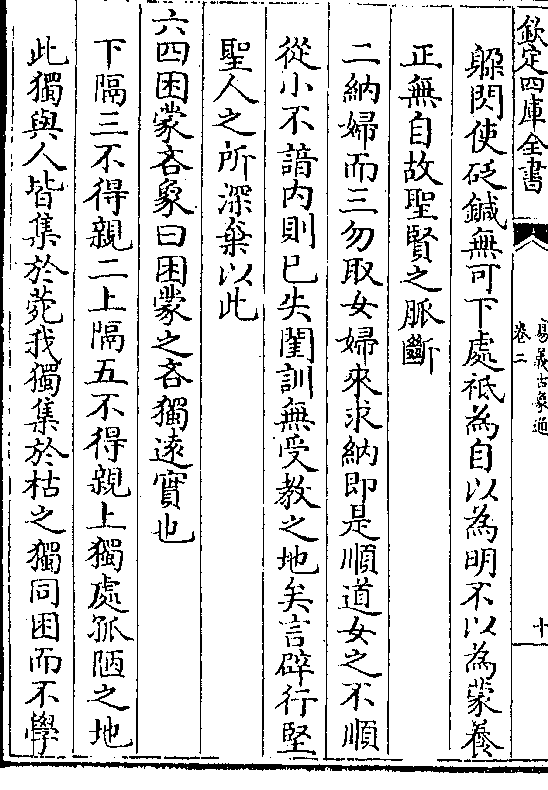 欽定四庫全書
易義古象通
卷二
十
躱閃使砭鍼無可下處祗為自以為明不以為蒙養
正無自故聖賢之脈斷
二納婦而三勿取女婦來求納即是順道女之不順
從小不諳内則已失閨訓無受教之地矣言辟行堅
聖人之所深棄以此
六四困蒙吝象曰困蒙之吝獨逺實也
下隔三不得親二上隔五不得親上獨處孤陋之地
此獨與人皆集於菀我獨集於枯之獨同困而不學